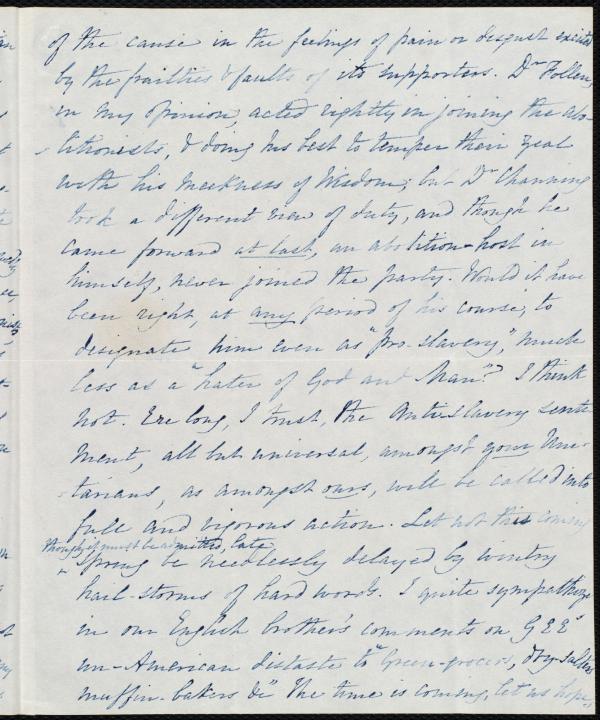 of the cause in the feelings of pain or disgust excited
by the frailties & faults of its supporters. Dr Follen,
in my opinion, acted rightly in joining the abo-
litionists, & doing his best to temper their zeal
with his meekness of Wisdom; but Dr Channing
took a different view of duty, and though he
came forward at last, an abolition-host in
himself, never joined the party. Would it have
been right, at any period of his course, to
designate him even as "pro-slavery," much
less as a "hater of God and Man"? I think
not. Ere long, I trust, the Anti-slavery senti-
ment, all but universal, amongst your Uni-
tarians, as amongst ours, will be called into
full and vigorous action. Let not this coming
though it must be admitted, late
Spring be needlessly delayed by wintry
hail-storms of hard words. I quite sympathize
in our English brother's comments on GEE's
un-American distaste to "Green-grocers, dry-salters
muffin-bakers &c" The time is coming, let us hope,